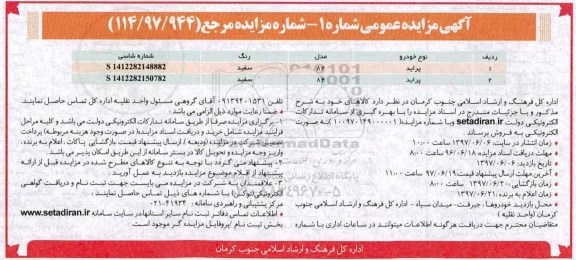 آگهی مزایده عمومی شماره ۱- شماره مزایده مرجع (۱۱۴/۹۷/۹۴۴)
ردیف نوع خودرو مدل رنگ شماره شاسی
۱ پراید ۸۲ سفید S 1412282148882
۲ پراید ۸۲ سفید S 1412282150782
اداره کل فرهنگ و ارشاد اسلامی جنوب کرمان در نظر دارد کالاهای خود به شرح
مذکور و با جزئیات مندرج در اسناد مزایده را با بهره گیری از سامانه تدارکات
الکترونیکی دولت setadiran.ir وبا شماره مزایده به صورت
الکترونیکی به فروش برساند.
زمان انتشار در سایت: ۱۳۹۷/۰۶/۰۶ ساعت ۱۰:۰۰
مهلت دریافت اسناد مزایده: ساعت ۸:۰۰
تاریخ بازدید: ۱۳۹۷/۰۶/۰۶
آخرین مهلت ارسال پیشنهاد قیمت: ۹۷/۰۶/۱۹ ساعت ۱۱:۰۰
زمان بازگشایی: ۱۳۹۷/۰۶/۲۰ ساعت ۸:۰۰
زمان اعلام به برنده: ۱۳۹۷/۰۶/۲۱
• محل بازدید خودروها: جیرفت- میدان سپاه - اداره کل فرهنگ و ارشاد اسلامی جنوب
کرمان (واحد نقلیه)
متقاضیان محترم جهت دریافت هرگونه اطلاعات میتوانند در ساعات اداری با شماره
تلفن ۰۹۱۳۹۴۰۱۵۳۱ آقای گروهی مسئول واحد نقلیه اداره کل تماس حاصل نمایند.
• ضمنا رعایت موارد ذیل الزامی می باشد:
۱- برگزاری مزایده صرفا از طریق سامانه تدارکات الکترونیکی دولت می باشد و کلیه مراحل
فرایند مزایده شامل خرید و دریافت اسناد مزایده (در صورت وجود هزینه مربوطه) پرداخت
تضمین شرکت در مزایده (ودیعه)، ارسال پیشنهاد قیمت بازگشایی پاکات، اعلام به برنده،
واریز وجه مزایده و تحویل کالا در بستر سامانه از این طریق امکان پذیر می باشد.
۲- پیشنهاد می گردد با توجه به تنوع کالاهای مطرح شده در مزایده قبل از ارائه
پیشنهاد از اقلام موضوع مزایده بازدید به عمل آورید.
۳- علاقمندان به شرکت در مزایده می بایست جهت ثبت نام و دریافت گواهی
الکترونیکی (توکن) با شماره های ذیل تماس حاصل نمایند:
مرکز پشتیبانی و راهبردی سامانه: ۰۲۱-۴۱۹۳۴
• اطلاعات تماس دفاتر ثبت نام سایر استانها در سایت سامانه www.setadiran.ir
بخش ثبت نام/پروفایل مزایده گر موجود است.
اداره کل فرهنگ و ارشاد اسلامی جنوب کرمان